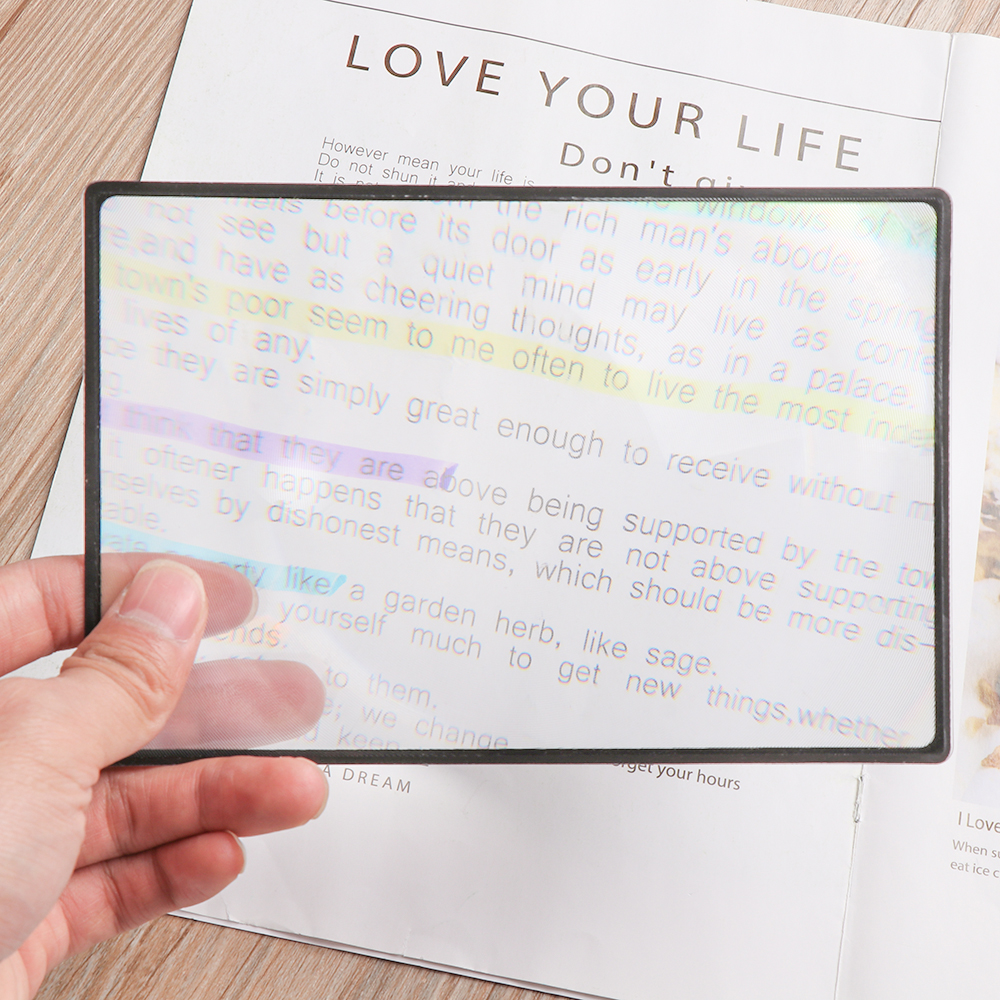 LOVE YOUR LIFE
Don't
However mean your life is
Do not shun it and
It is
windows of
melts before its door as early in the spring
the rich man's abode,
not see but a quiet mind may live as
and have as cheering thoughts, as in a palace.
town's poor seem to me often to live the most
lives of any.
they are simply great enough to receive without
think that they are above being supported by the
it oftener happens that they are not above supporting
by dishonest means, which should be more dis-
like a garden herb, like sage.
yourself much to get new things, whether
to them.
we change
keep
A DREAM
your hours
I Love
When
eat ice